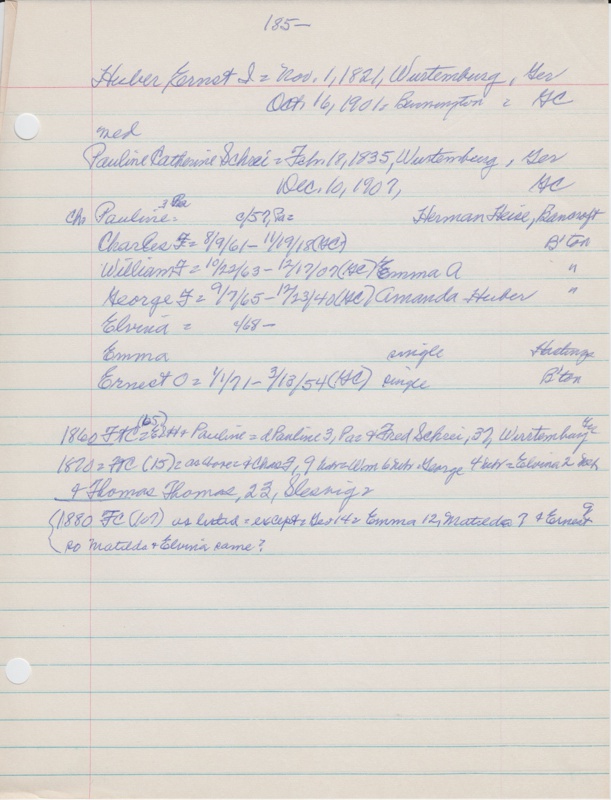 185—
Huber, Ernst I. = Nov. 1, 1821, Wurtemburg, Ger
Oct. 16, 1901, Bennington = GC
med
Pauline Catherine Schrei = Feb 18, 1835, Wurtemburg, Ger
Dec. 10, 1907, GC
ch. Pauline = 3 Pa c/57 Pa = Herman Heise, Bancroft
Charles F = 8/9/61 — 11/19/18 (GC) B'ton
William F = 10/22/63 — 12/17/07 (GC) Emma A "
George F = 9/7/65 — 12/23/40 (GC) Amanda Huber "
Elvina = c/68 —
Emma single Hastings
Ernest O = 1/1/71 — 3/13/54 (GC) single B'ton
1860 FTC = (65) + Pauline = d Pauline 3, Pa = + Fred Schrei, 37, Wurtemburg Ger
1870 = FTC (15) = as above = + Chas F, 9 Wm 6 George 4 Elvina 2
+ Thomas Thomas, 23, Sleswig =
1880 FC (107) as listed = except = Geo 14 = Emma 12, Matilda ? + Ernest 9
so Matilda + Elvina same?